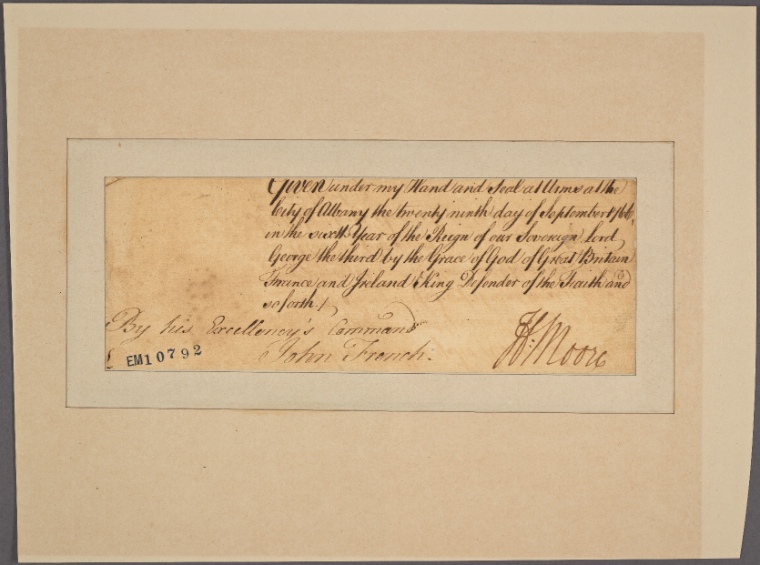 Given under my Hand and Seal at Arms at the
City of Albany the twenty ninth day of September 1766,
in the sixth Year of the Reign of our Sovereign Lord
George the third by the Grace of God of Great Britain
France and Ireland King Defender of the Faith and
so forth.
By his Excellency's Command
John French.
H: Moore
EM10792